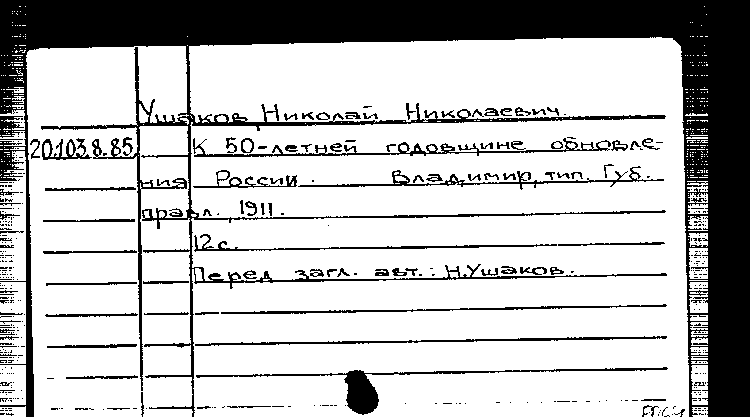 Ушаков, Николай Николаевич.
20.103.8.85. К 50-летней годовщине обновле-
ния России. Владимир, тип. Губ.
правл., 1911.
12 с.
Перед загл. авт.: Н.Ушаков.